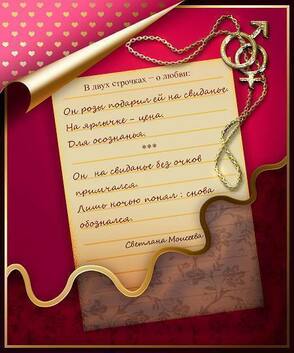 В двух строчках – о любви:
Он розы подарил ей на свиданье.
На ярлычке - цена.
Для осознанья.
***
Он на свиданье без очков
примчался.
Лишь ночью понял : снова
обознался.
Светлана Моисеева